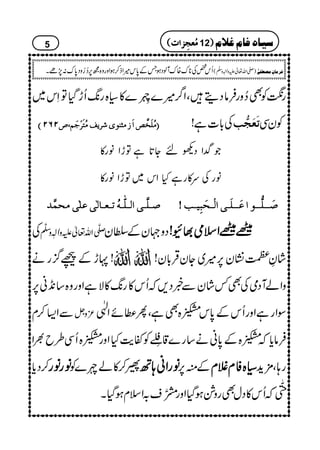 5
سیاہ فام غلام (12 مُعجزات)
فرمانِ مصطفےٰ (صلی اللہ تعالیٰ علیہ والہٖ وسلّم) اُس شخص کی ناک خاک آلود ہو جس کے پاس میرا ذکر ہو اور وہ مجھ پر دُرُود پاک نہ پڑھے۔
رنگت کو بھی دُور فرما دیتے ہیں، اگر میرے چہرے کا سیاہ رنگ اُڑ گیا تو اِس میں
کون سی تَعَجُّب کی بات ہے! (مُلَخَّص اَز مثنوی شریف مُتَرجَم ص ۲۶۲)
جو گدا دیکھو لئے جاتا ہے توڑا نور کا
نور کی سرکار ہے کیا اس میں توڑا نور کا
صَلُّوا عَلَی الْحَبِیب ! صلَّی اللہُ تعالٰی علٰی محمَّد
میٹھے میٹھے اسلامی بھائیو! دو جہان کے سلطان صلَّی اللہ تعالیٰ علیہ واٰلہٖ وسلَّم کی
شانِ عظمت نشان پر میری جان قربان! اللہ اللہ! پہاڑ کے پیچھے سے گزرنے
والے آدمی کی بھی کس شان سے خبر دی کہ اُس کا رنگ کالا ہے اور وہ سانڈنی پر
سوار ہے اور اُس کے پاس مشکیزہ بھی ہے، پھر عطائے الٰہی عزوجل سے ایسا کرم
فرمایا کہ مشکیزہ کے پانی نے سارے قافِلے کو کفایت کیا اور مشکیزہ اُسی طرح بھرا
رہا، مزید سیاہ فام غلام کے منہ پر نورانی ہاتھ پھیر کر کالے چہرے کو نور نور کر دیا
حتّٰی کہ اُس کا دل بھی روشن ہو گیا اور مشرَّف بہ اسلام ہو گیا۔